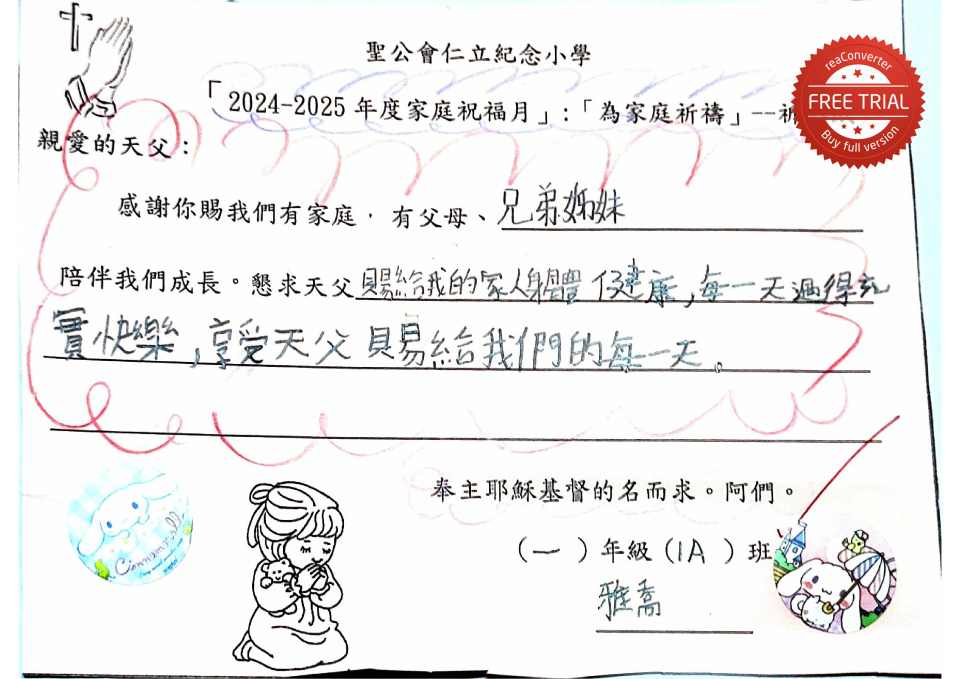 聖公會仁立紀念小學
「2024-2025 年度家庭祝福月」:「為家庭祈禱」--祈
親愛的天父：
感謝你賜我們有家庭，有父母、兄弟姊妹
陪伴我們成長。懇求天父賜給我的家人身體健康,每一天過得充
實快樂,享受天父賜給我們的每一天。
奉主耶穌基督的名而求。阿們。
（一）年級（1A）班
雅喬
Cinnamoroll
reaConverter
FREE TRIAL
Buy full version